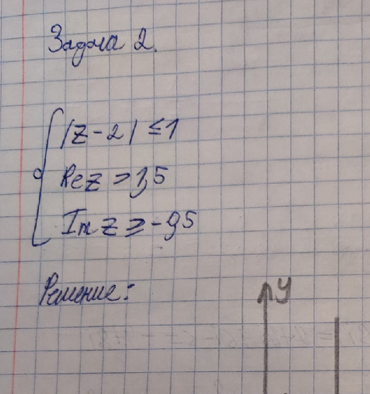 Задача 2.
|z-2| ≤ 1
Re z > 1,5
Im z ≥ -0,5
Решение:
y